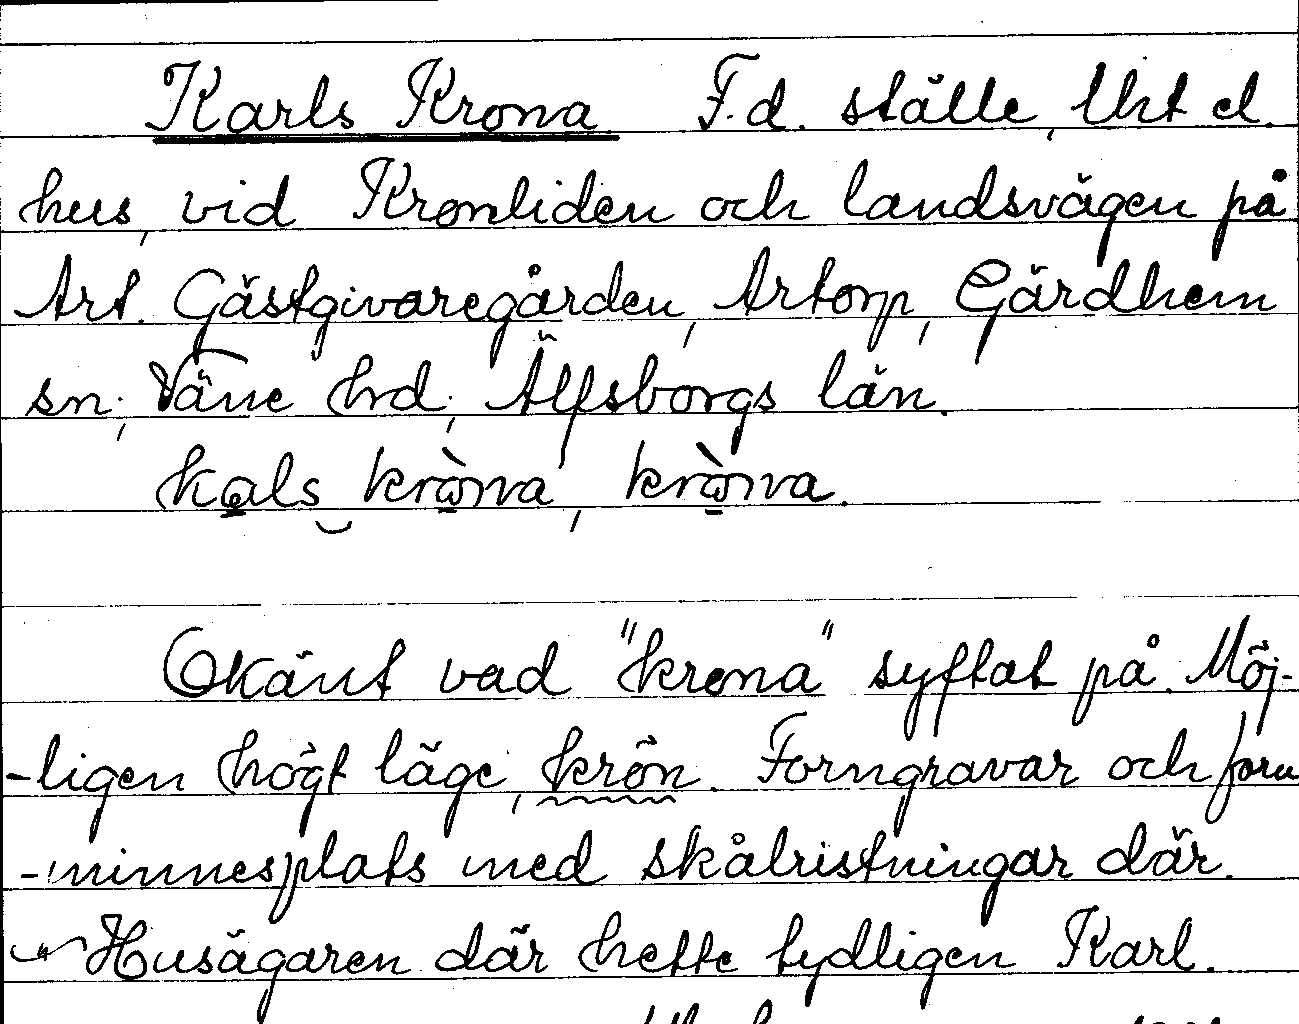 Karls Krona F.d. ställe, Urt el.
hus, vid Kronliden och landsvägen på
Art. Gästgivaregården, Artorp, Gärdhem
sn, Väne hrd, Älfsborgs län.
kals kròna, kròna.
Okänt vad "krona" syftat på. Möj-
-ligen högt läge, krön. Forngravar och forn
-minnesplats med skålristningar där.
Husägaren där hette tydligen Karl.